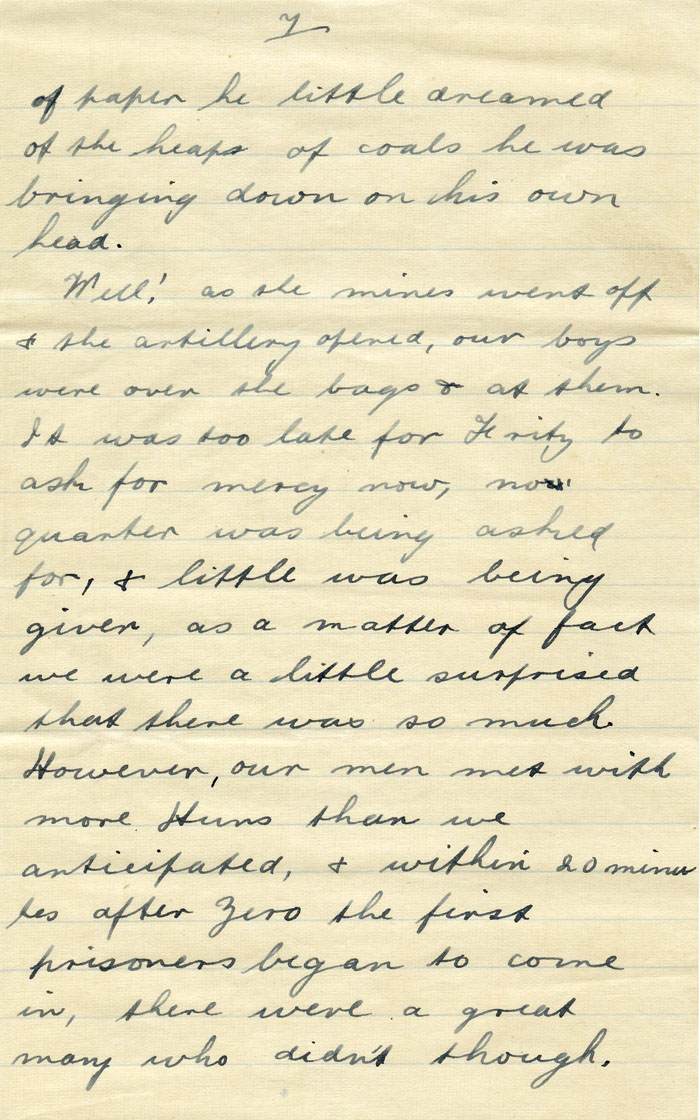 7
of paper he little dreamed
of the heaps of coals he was
bringing down on his own
head.
Well! as the mines went off
& the artillery opened, our boys
were over the bags & at them.
It was too late for Fritz to
ask for mercy now, now
quarter was being asked
for, & little was being
given, as a matter of fact
we were a little surprised
that there was so much.
However, our men met with
more Huns than we
anticipated, & within 20 minu
tes after Zero the first
prisoners began to come
in, there were a great
many who didn't though.